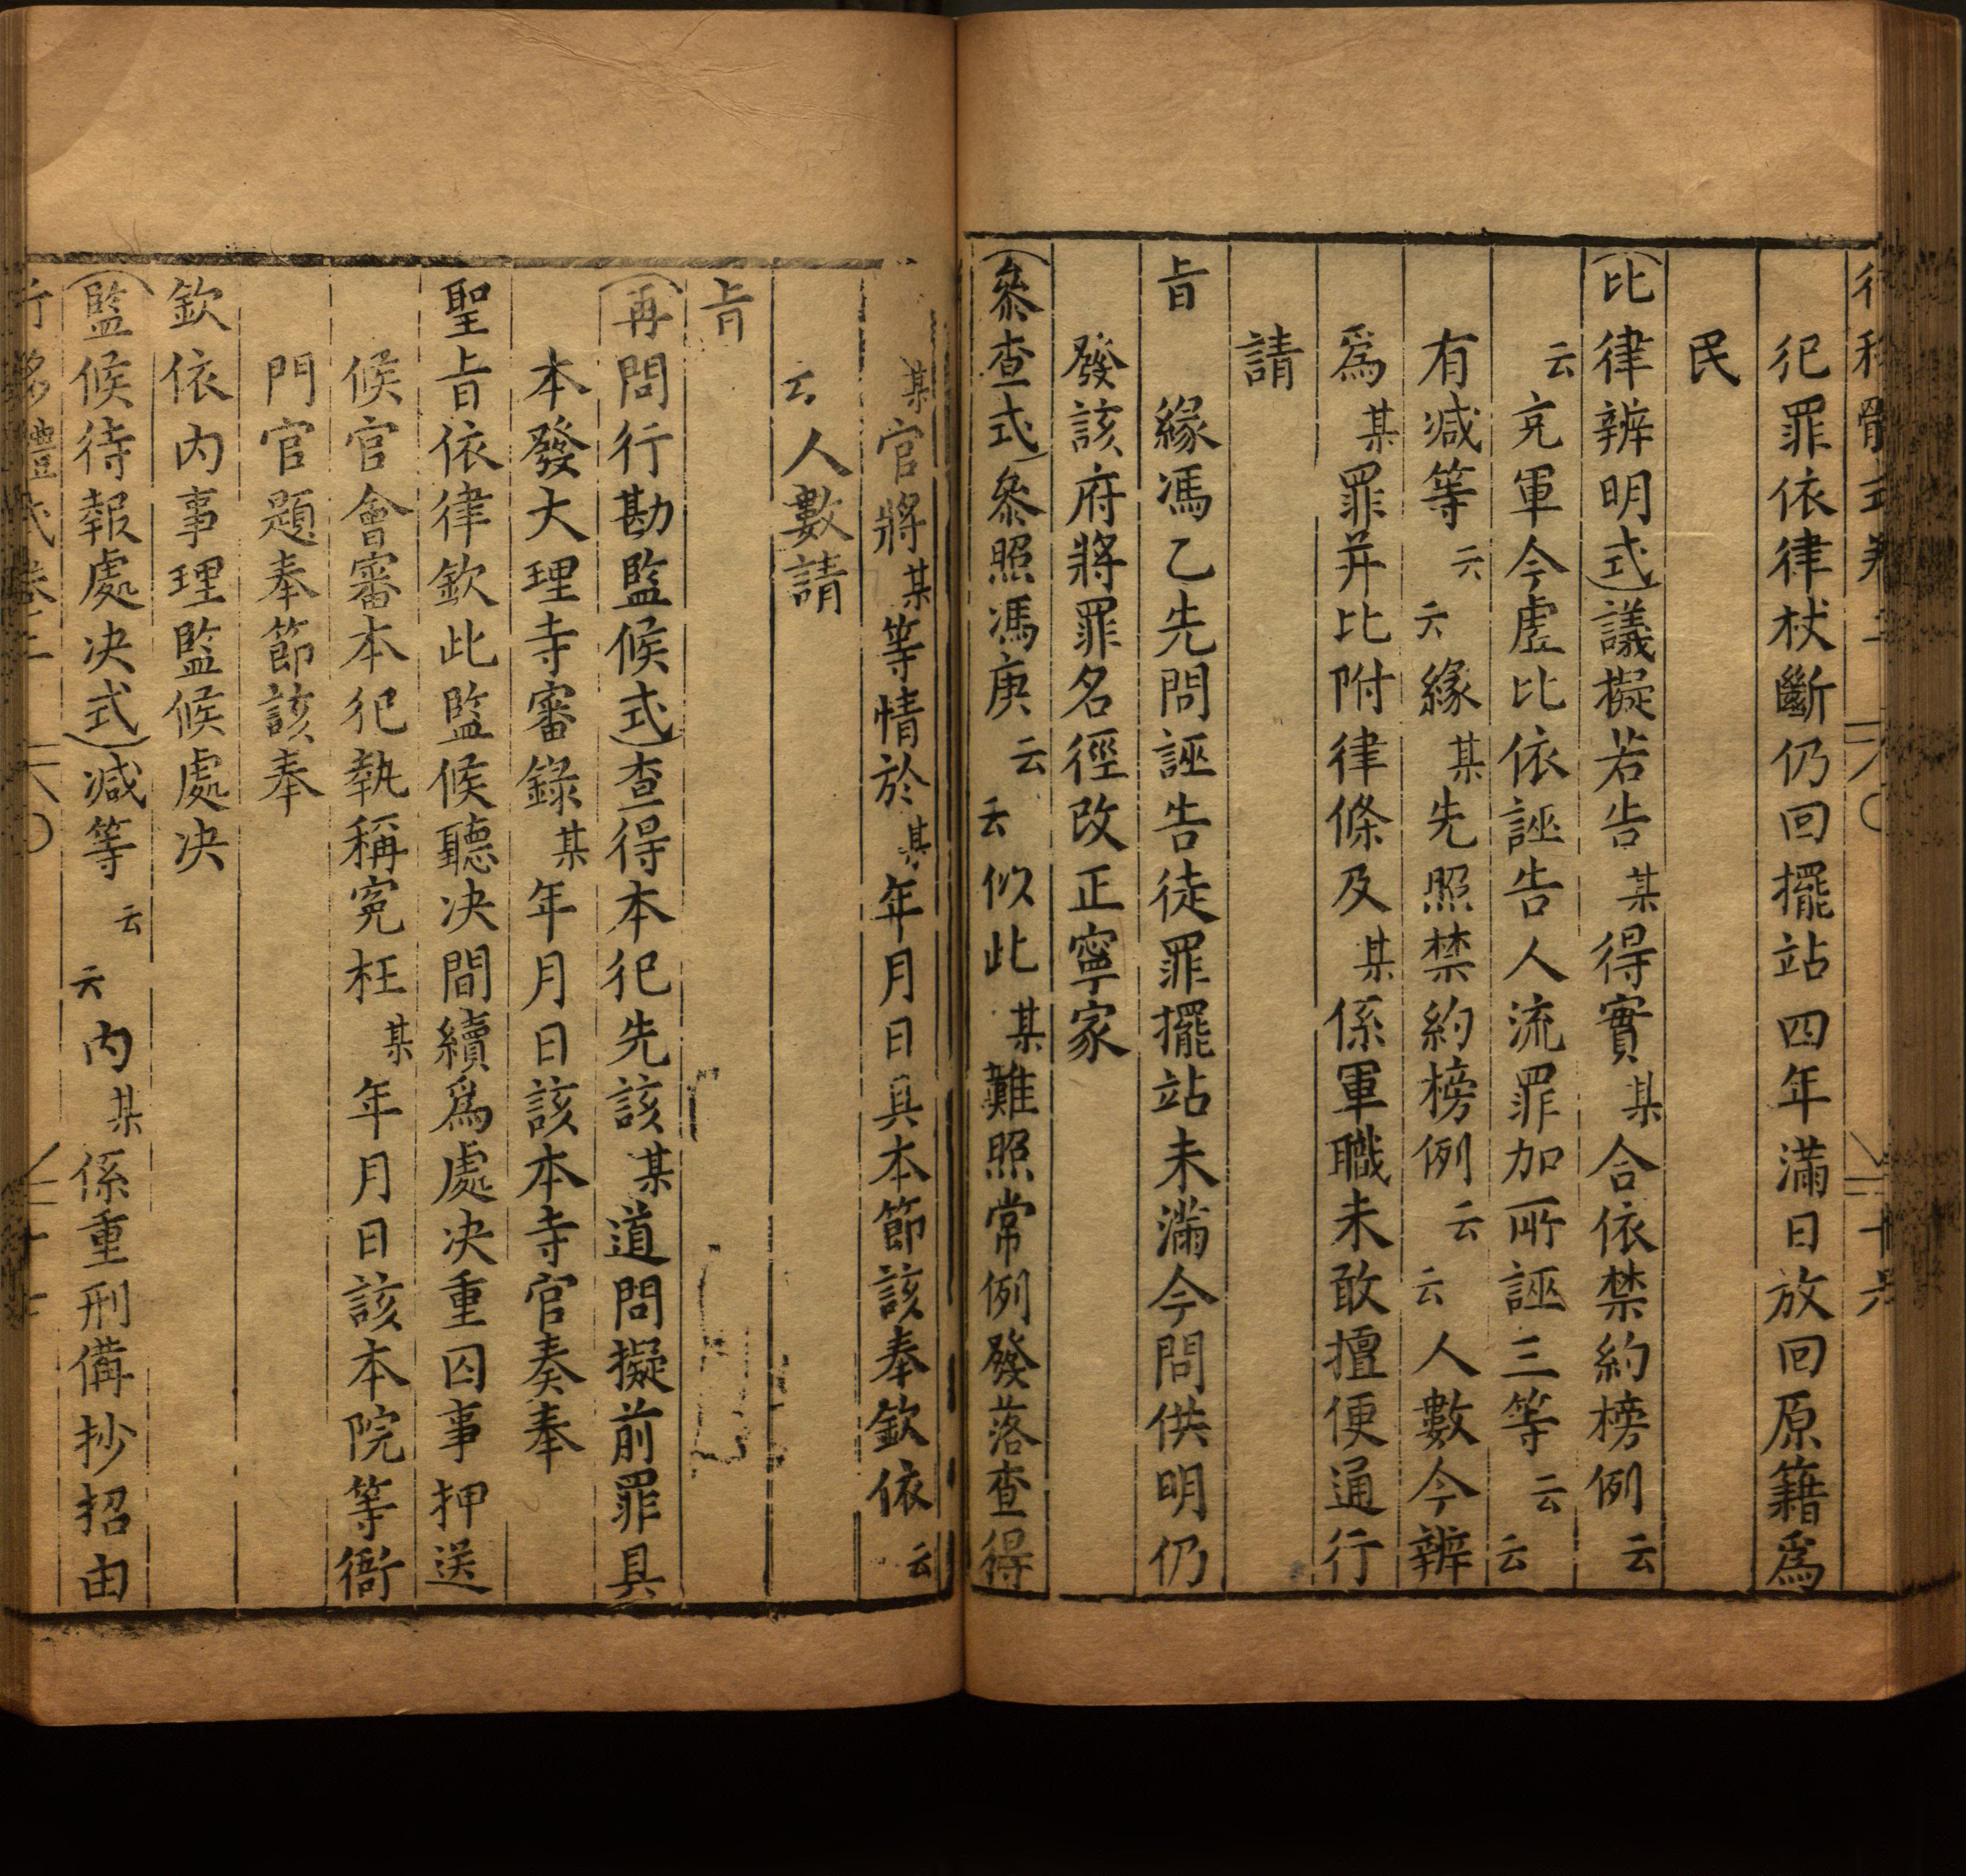 犯罪依律杖斷仍回擺站四年滿日放回原籍爲
民
比律辨明式議擬若告某得實某合依禁約榜例云
云充軍今虗比依誣告人流罪加所誣三等云云
有減等云云緣某先照禁約榜例云云人數今辨
爲某罪并比附律條及某係軍職未敢擅便通行
請
旨緣馮乙先問誣告徒罪擺站未滿今問供明仍
發該府將罪名徑改正寧家
叅查式叅照馮庚云云似此某難照常例發落查得
某官將某等情於某年月日具本節該奉欽依云
云人數請
旨
再問行勘監候式查得本犯先該某道問擬前罪具
本發大理寺審錄某年月日該本寺官奏奉
聖旨依律欽此監候聽决間續爲處决重囚事押送
候官會審本犯執稱寃枉某年月日該本院等衙
門官題奉節該奉
欽依內事理監候處决
監候待報處决式減等云云內某係重刑備抄招由